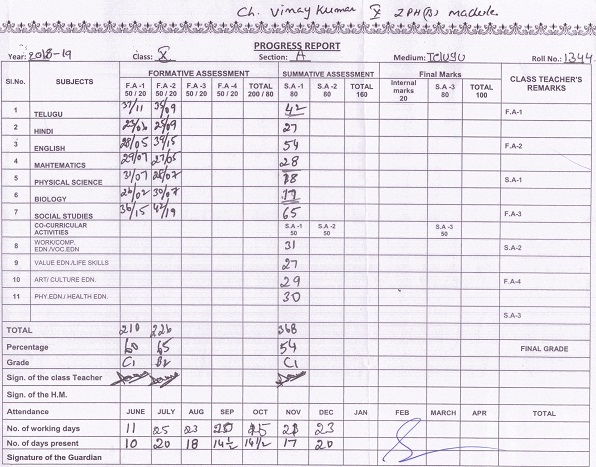 Ch. Vinay Kumar X ZPH(B) madvele
PROGRESS REPORT
Year: 2018-19 Class: X Section: A Medium: Telugu Roll No.: 1344
Sl.No. SUBJECTS FORMATIVE ASSESSMENT SUMMATIVE ASSESSMENT Final Marks CLASS TEACHER'S REMARKS
F.A -1 50 / 20 F.A -2 50 / 20 F.A -3 50 / 20 F.A -4 50 / 20 TOTAL 200 / 80 S.A -1 80 S.A -2 80 TOTAL 160 Internal marks 20 S.A -3 80 TOTAL 100
1 TELUGU 37/11 35/09 42 F.A-1
2 HINDI 23/06 25/09 27
3 ENGLISH 28/05 39/15 54 F.A-2
4 MAHTEMATICS 29/07 27/05 28
5 PHYSICAL SCIENCE 31/07 28/07 18 S.A-1
6 BIOLOGY 26/02 30/07 17
7 SOCIAL STUDIES 36/15 42/19 65 F.A-3
CO-CURRICULAR ACTIVITIES S.A -1 50 S.A -2 50 S.A -3 50
8 WORK/COMP. EDN./VOC.EDN 31 S.A-2
9 VALUE EDN./LIFE SKILLS 27
10 ART/ CULTURE EDN. 29 F.A-4
11 PHY.EDN./ HEALTH EDN. 30
S.A-3
TOTAL 210 226 368
Percentage 60 65 54 FINAL GRADE
Grade C1 B2 C1
Sign. of the class Teacher
Sign. of the H.M.
Attendance JUNE JULY AUG SEP OCT NOV DEC JAN FEB MARCH APR TOTAL
No. of working days 11 25 23 15 23
No. of days present 10 20 18 14½ 14½ 17 20
Signature of the Guardian